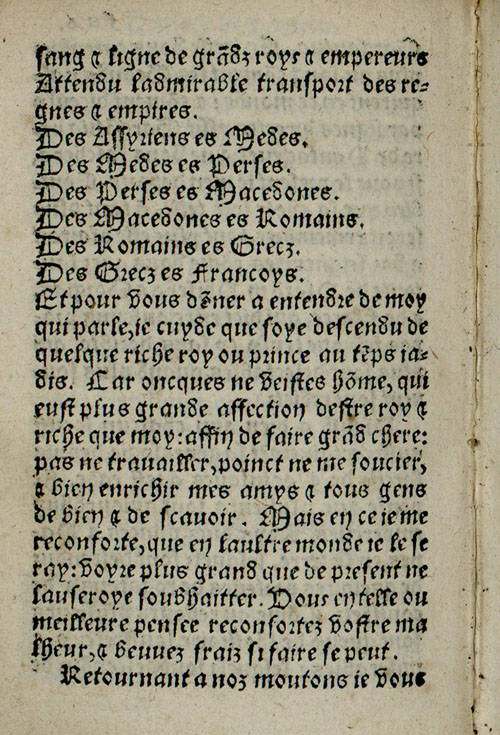 sang & ligne de grãdz roys & empereurs
Attendu ladmirable transport des re-
gnes & empires.
Des Assyriens es Medes.
Des Medes es Perses.
Des Perses es Macedones.
Des Macedones es Romains.
Des Romains es Grecz.
Des Grecz es Francoys.
Et pour vous dõner a entendre de moy
qui parle, ie cuyde que soye descendu de
quelque riche roy ou prince au tẽps ia-
dis. Car oncques ne veistes hõme, qui
eust plus grande affection destre roy &
riche que moy: affin de faire grãd chere:
pas ne trauailler, poinct ne me soucier,
& bien enrichir mes amys & tous gens
de bien & de scauoir. Mais en ce ie me
reconforte, que en laultre monde ie le se
ray: voyre plus grand que de present ne
lauseroye soubhaitter. Vous en telle ou
meilleure pensee reconfortez vostre ma
lheur, & beuuez fraiz si faire se peut.
Retournant a noz moutons ie vous